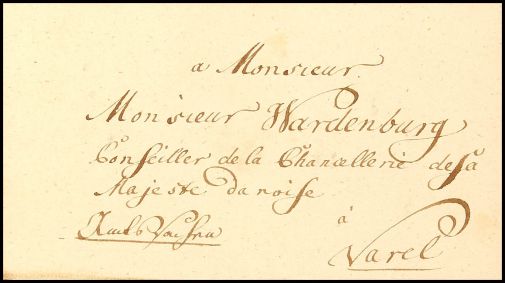 a Monsieur
Monsieur Wardenburg
Conseiller de la Chancellerie de sa
Majeste danoise
à
Varel